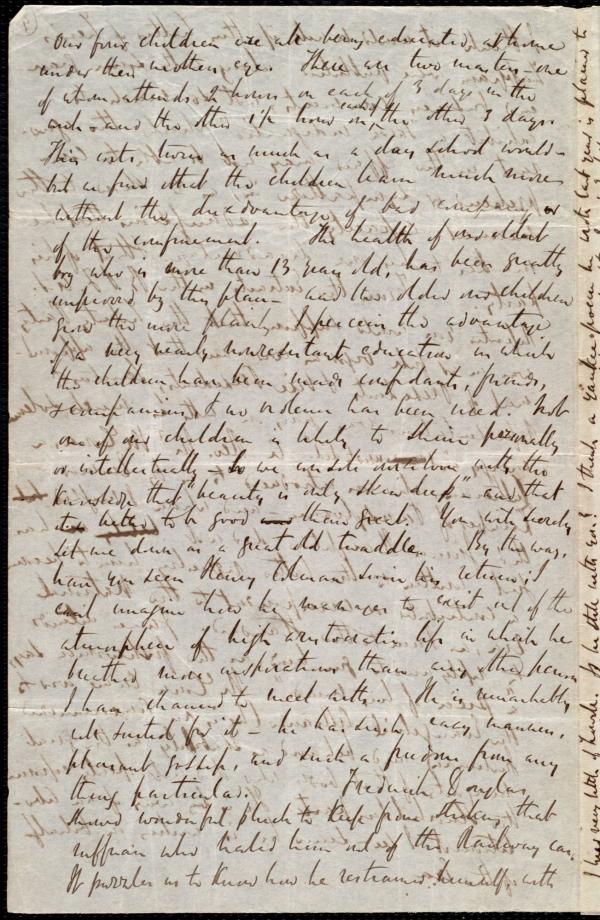 Our four children are all being educated at home
under their mothers eye. There are two masters, one
of whom attends 2 hours on each of 3 days in the
week - and the other 1½ hour on each of the other 3 days.
This costs twice as much as a day school would -
but we find that the children learn much more
without the disadvantage of bad company or
of the confinement. The health of our eldest
boy who is more than 13 years old, has been greatly
improved by this plan - and the older our children
grow the more plainly I perceive the advantage
of a very nearly nonresistant education in which
the children have been made confidants, friends,
& companions, & no violence has been used. Not
one of our children is likely to shine personally
or intellectually - so we console ourselves with the
knowledge that "beauty is only skin deep" - and that
better to be good than great. You will surely
set me down as a great old twaddler. By the way,
have you seen Henry Colman since his return; I
can't imagine how he manages to exist out of the
atmosphere of high aristocratic life in which he
breathed more inspirations than any other person
I have chanced to meet with. He is remarkably
well suited for it - he has such easy manners,
pleasant gossip, and such a freedom from any
thing particular. Frederick Douglas
showed wonderful pluck to keep from striking that
ruffian who haled him out of the Railway car.
It puzzles us to know how he restrained himself, with
I hear very little of him. Is he still with you? I think a Yankee poem he wrote last year is